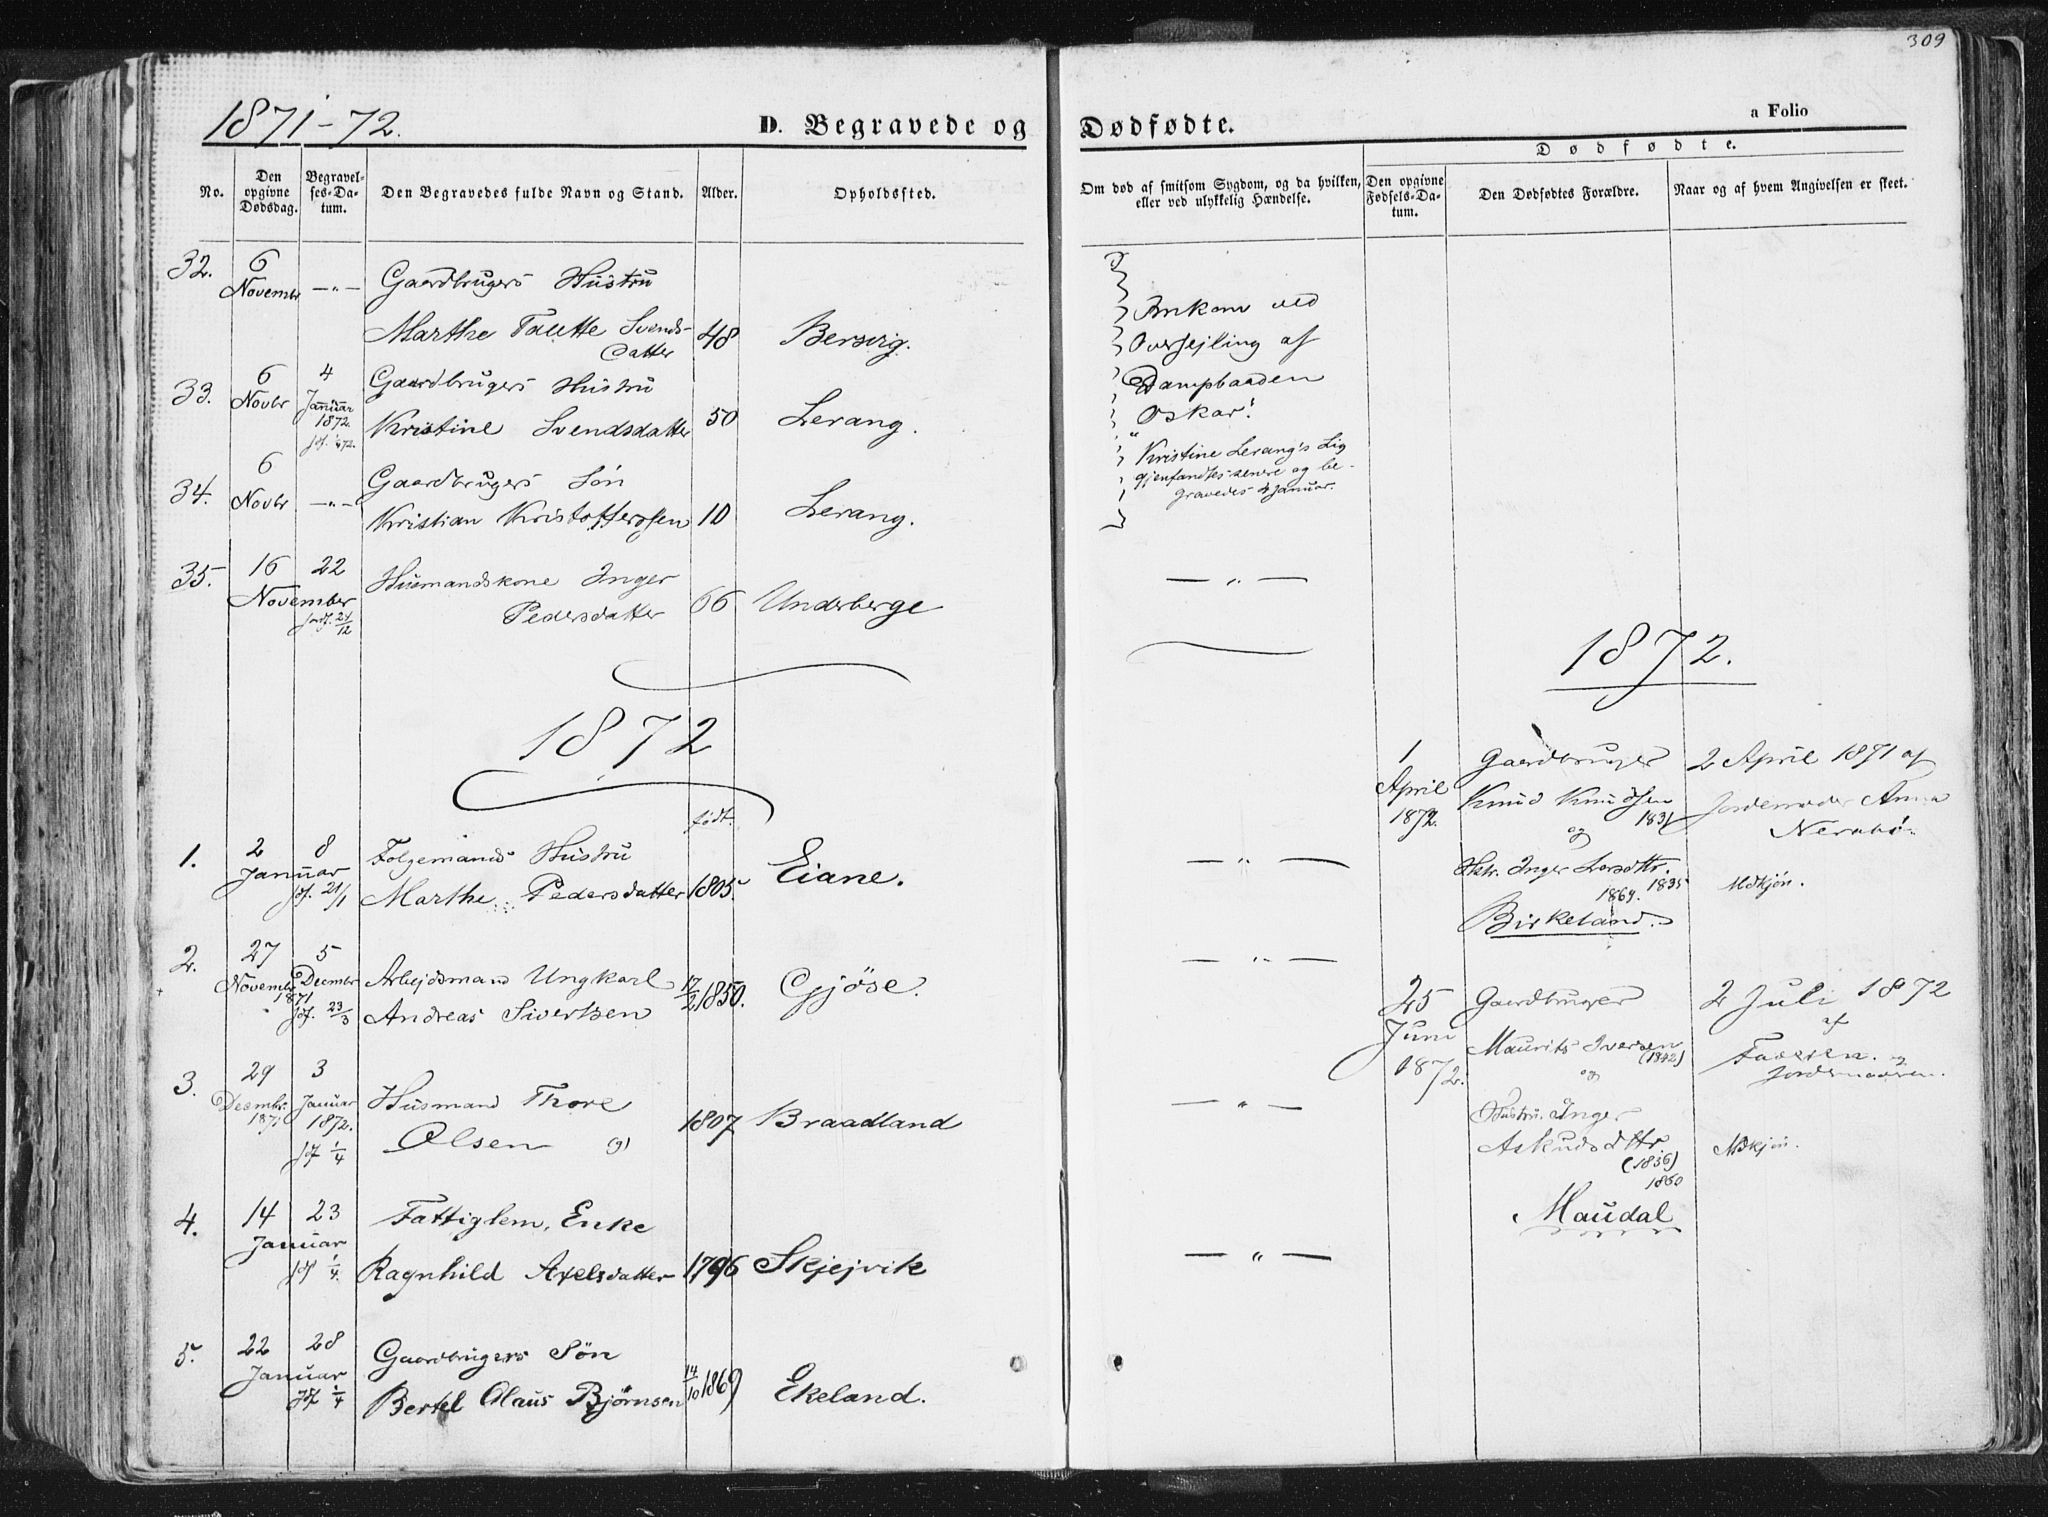 309
1871-72.
D. Begravede og Dødfødte.
a Folio
No.
Den opgivne Dødsdag.
Begravel-
ses-Da-
tum.
Den Begravedes fulde Navn og Stand.
Alder.
Opholdssted.
Om død af smitsom Sygdom, og da hvilken,
eller ved ulykkelig Hændelse.
Dødfødte.
Den opgivne
Fødsels-Da-
tum.
Den Dødfødtes Forældre.
Naar og af hvem Angivelsen er skeet.
32. 6 Novembr —"— Gaardbrugers Hustru
Marthe Tautte Svends-
datter 48 Bersvig.
33. 6 Novbr 4 Januar 1872. Gaardbrugers Hustru
Kristine Svendsdatter 50 Lerang.
34. 6 Novbr —"— Gaardbrugers Søn
Kristian Kristoffersen 10 Lerang.
Omkom ved
Overseiling af
Dampbaaden
Oskar!
Kristine Lerang's Lig
gjenfandtes senere og be-
gravedes 4 Januar.
35. 16 22 November Husmandskone Inger
jordf. 21/12 Pedersdatter 66 Underberge
— " —
1872
født.
1. 2 8 Januar Folgemands Hustru
jof. 21/1 Marthe Pedersdatter 1805. Eiane.
— " —
2. 27 Novembr 1871 5 Decembr Arbejdsmand Ungkarl
jof. 23/3 Andreas Sivertsen 17/2 1850. Gjöse.
— " —
3. 29 Decembr. 1871 3 Januar 1872. Husmand Thore
jof 1/4 Olsen (g) 1807 Braadland
— " —
4. 14 23 Januar Fattiglem, Enke
jof 1/4. Ragnhild Axelsdatter 1796 Skjejvik
— " —
5. 22 28 Januar Gaardbrugers Søn
jof 1/4 Bertel Olaus Bjørnsen 14/10 1869 Ekeland.
1872.
1 April 1872.
Gaardbruger
Knud Knudsen
1831
og
Hstr. Inger Larsdttr.
1869. 1835
Birkeland.
2 April 1871 af
Jordemoder Anna
Nerabö.
Mdkjön.
25 Juni 1872.
Gaardbruger
Maurits Iversen
(1842)
og
Hustru Inger
Askudsdttr
(1836)
1860
Maudal
2 Juli 1872
af
Faderen. og
Jordemoderen.
Mdkjön.